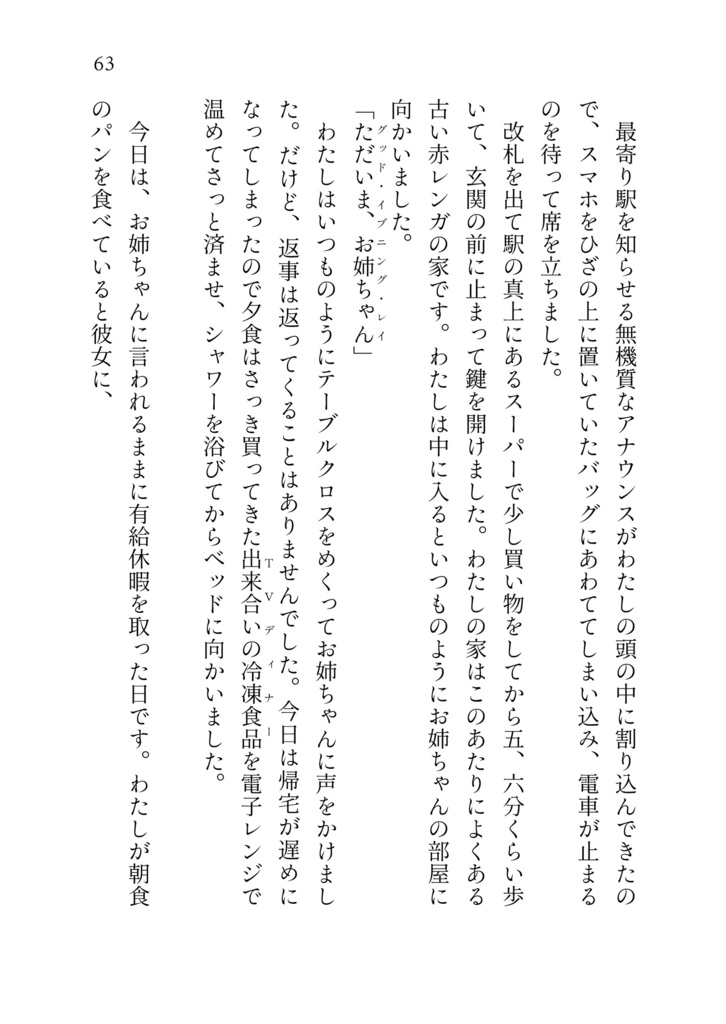 63
最寄り駅を知らせる無機質なアナウンスがわたしの頭の中に割り込んできたの
で、スマホをひざの上に置いていたバッグにあわててしまい込み、電車が止まる
のを待って席を立ちました。
改札を出て駅の真上にあるスーパーで少し買い物をしてから五、六分くらい歩
いて、玄関の前に止まって鍵を開けました。わたしの家はこのあたりによくある
古い赤レンガの家です。わたしは中に入るといつものようにお姉ちゃんの部屋に
向かいました。
「ただいま、お姉ちゃん」
グッド・イブニング・レイ
わたしはいつものようにテーブルクロスをめくってお姉ちゃんに声をかけまし
た。だけど、返事は返ってくることはありませんでした。今日は帰宅が遅めに
なってしまったので夕食はさっき買ってきた出来合いの冷凍食品を電子レンジで
TVディナー
温めてさっと済ませ、シャワーを浴びてからベッドに向かいました。
今日は、お姉ちゃんに言われるままに有給休暇を取った日です。わたしが朝食
のパンを食べていると彼女に、